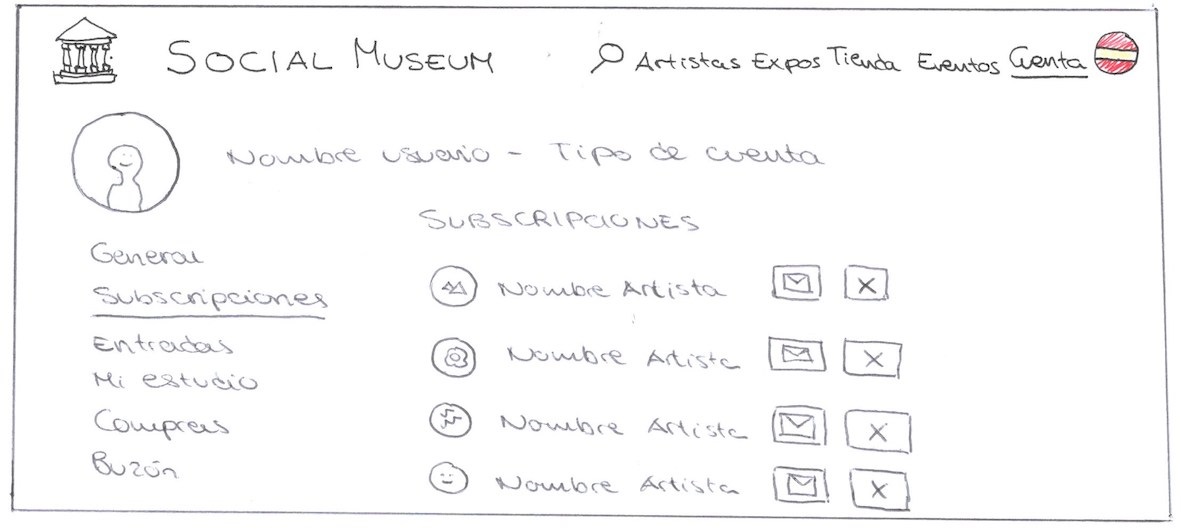 SOCIAL MUSEUM Artistas Expos Tienda Eventos Cuenta
Nombre usuario - Tipo de cuenta
SUBSCRIPCIONES
General
Subscripciones
Entradas
Mi estudio
Compras
Buzón
Nombre Artista X
Nombre Artista X
Nombre Artista X
Nombre Artista X